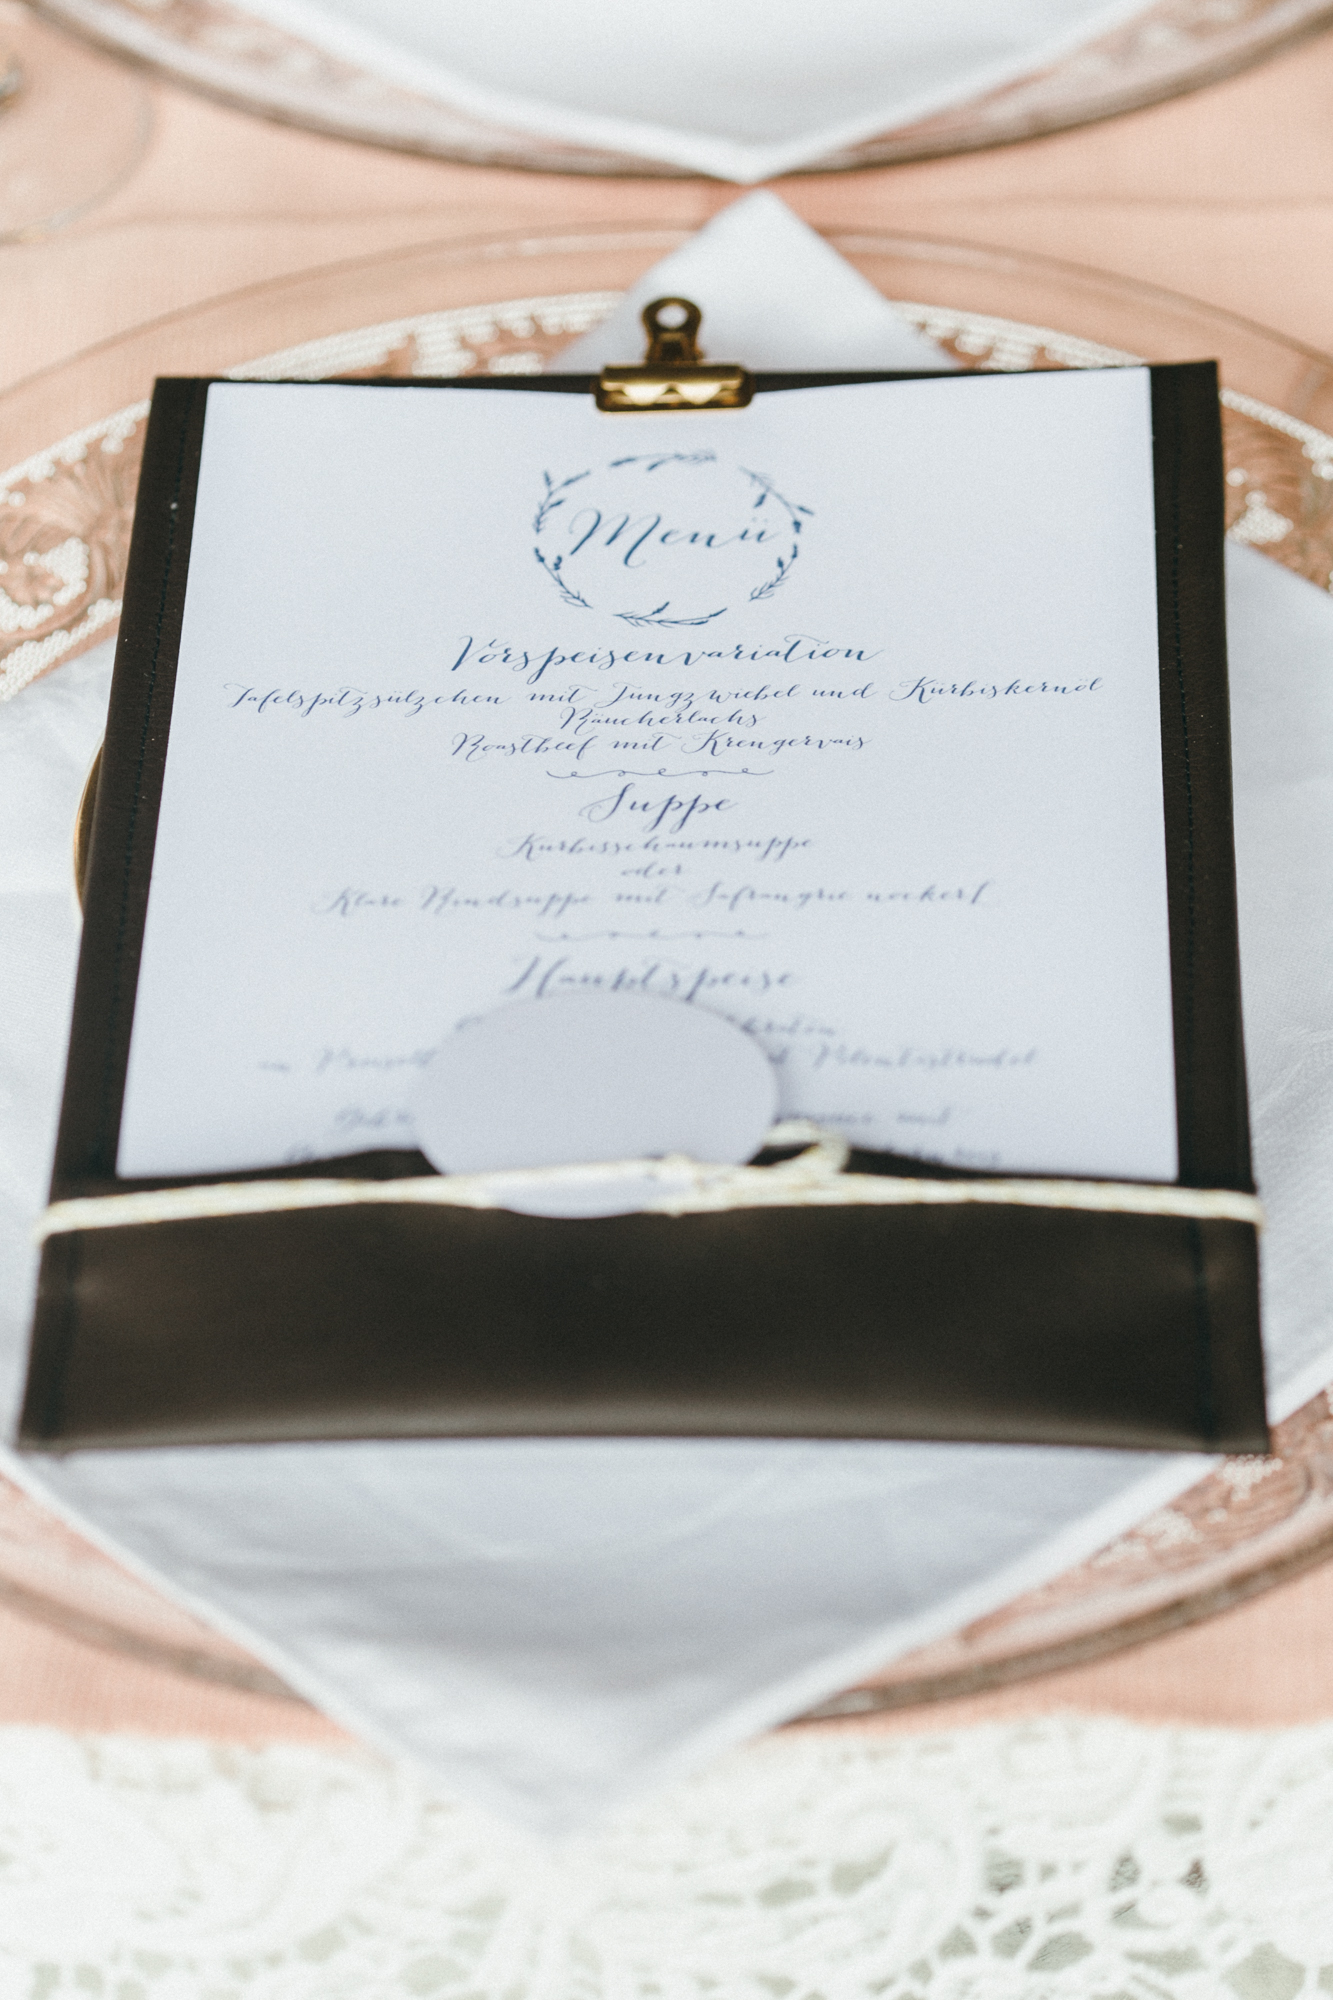 Menü
Vorspeisenvariation
Tafelspitzsülzchen mit Jungzwiebel und Kürbiskernöl
Räucherlachs
Roastbeef mit Krengervais
Suppe
Kürbisschaumsuppe
oder
Klare Rindsuppe mit Safrangrie nockerl
Hauptspeise
im
mit